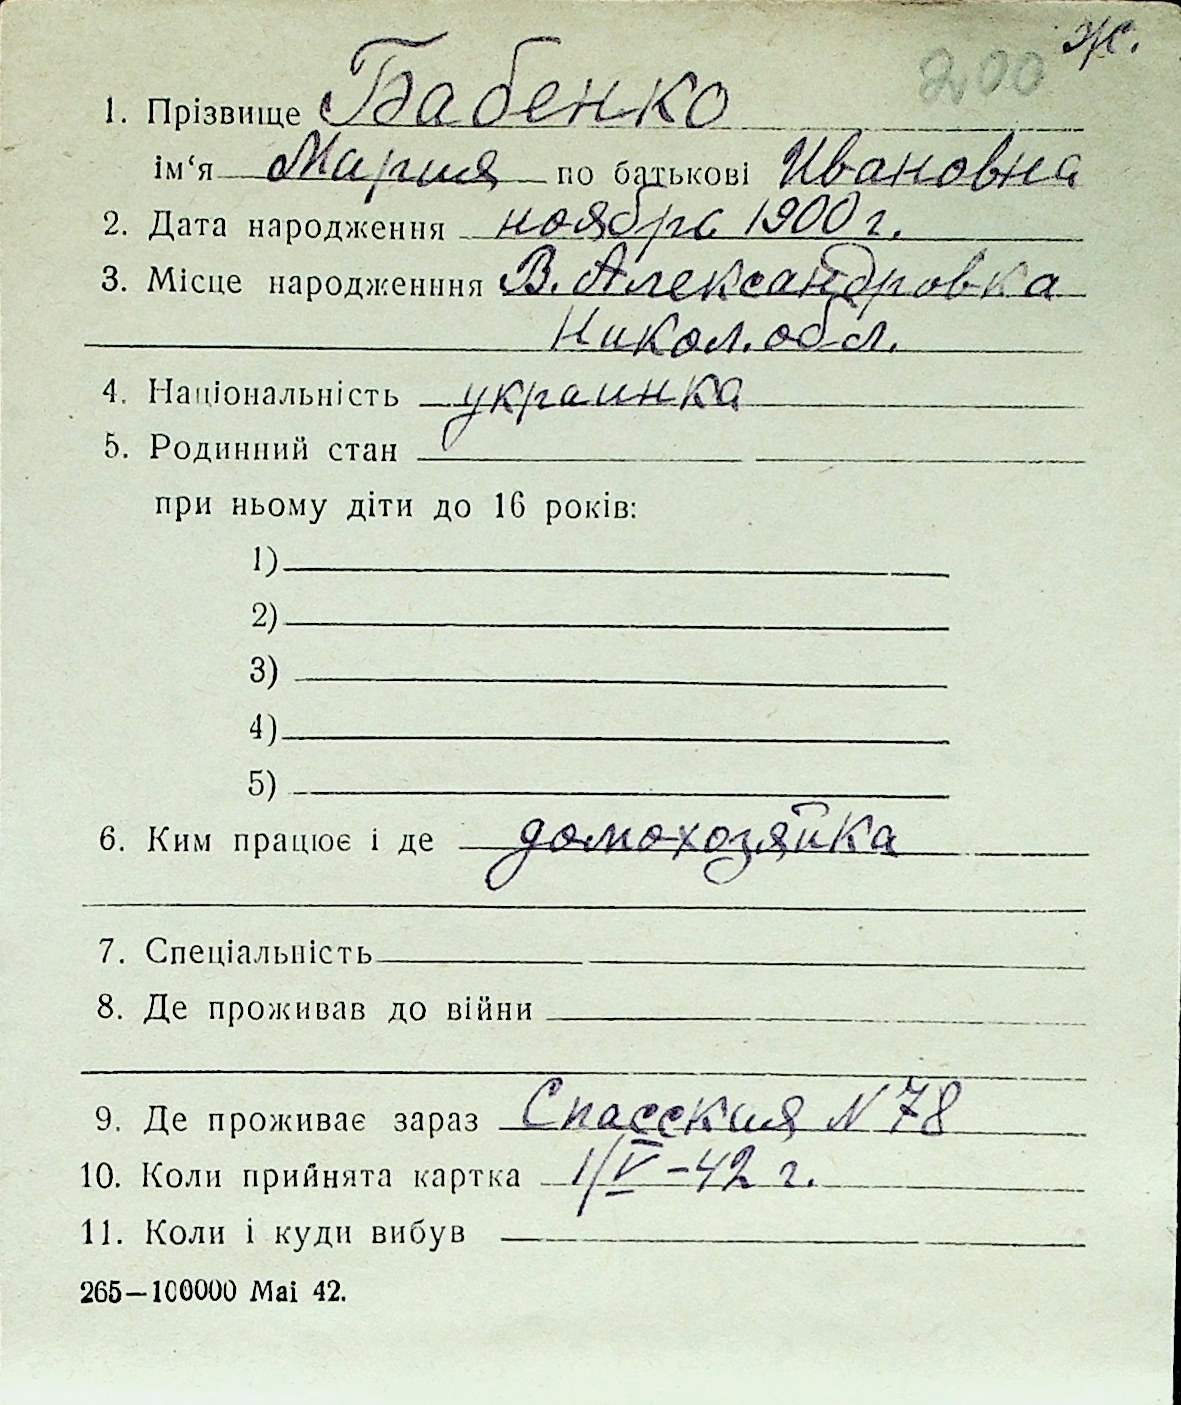 ж.
200
1. Прізвище Бабенко
ім‘я Мария по батькові Ивановна
2. Дата народження ноябрь 1900 г.
3. Місце народженння В. Александровка
Никол. обл.
4. Національність украинка
5. Родинний стан
при ньому діти до 16 років:
1)
2)
3)
4)
5)
6. Ким працює і де домохозяйка
7. Спеціальність
8. Де проживав до війни
9. Де проживає зараз Спасская N 78
10. Коли прийнята картка 1/V-42 г.
11. Коли і куди вибув
265—100000 Mai 42.